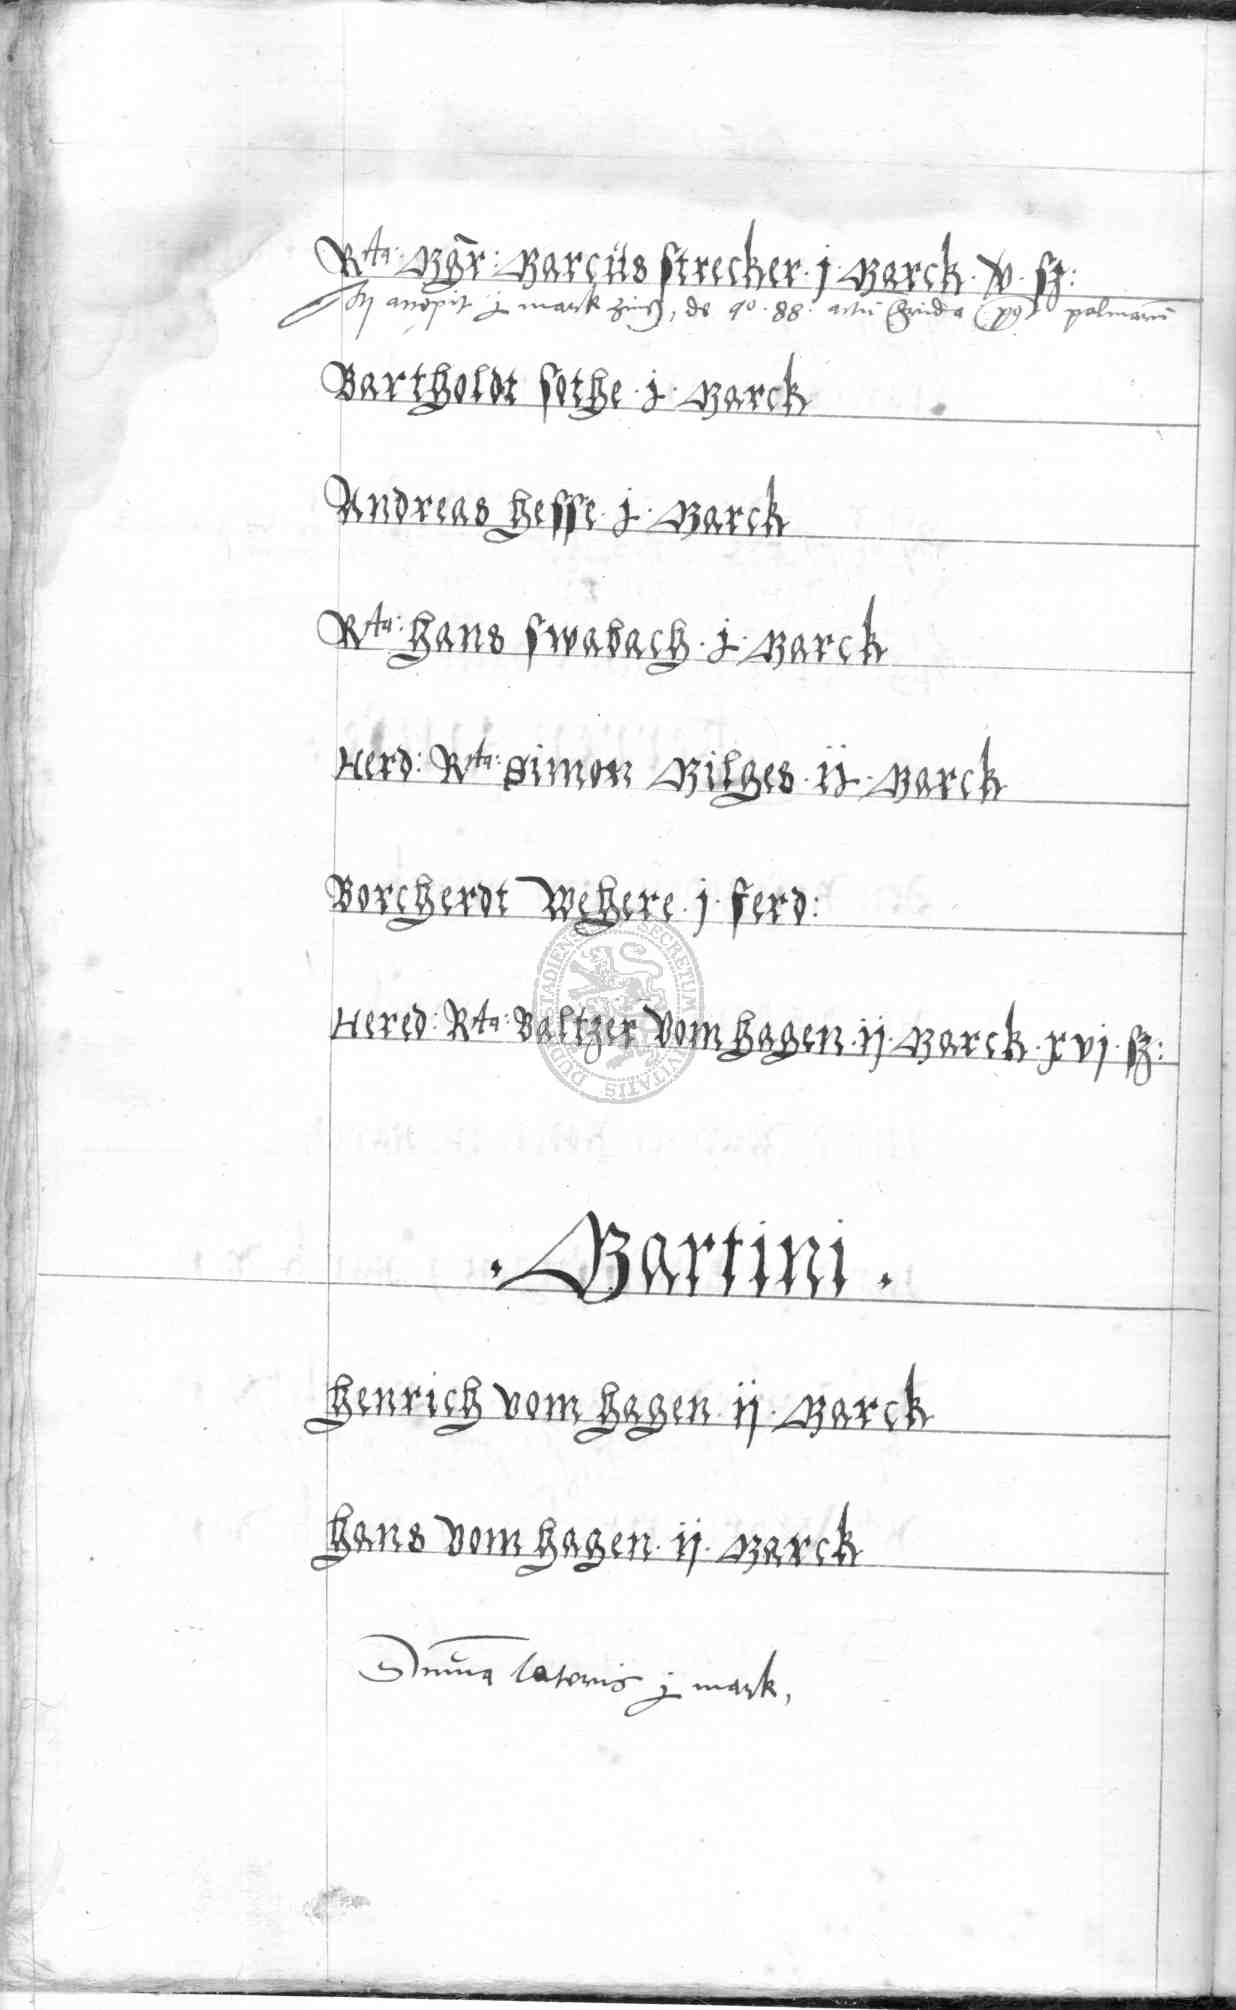 Rta: Mgr: Marcus Strecker · j · Marck · v · ß:
accepit j mark zins, de ao 88 palmarum
Bartholdt Sothe · j · Marck
Andreas Hesse · j · Marck
Rta: Hans Swabach · j · Marck
Herd: Rta: Simon Hilges · ij · Marck
Borcherdt Wehere · j · ferd:
Hered: Rta: Baltzer vom Hagen · ij · Marck · xvj · ß:
· Martini ·
Henrich vom Hagen · ij · Marck
Hans vom Hagen · ij · Marck
Summa lateris j mark,
SECRETUM CIVITATIS DUDERSTADIENSIS